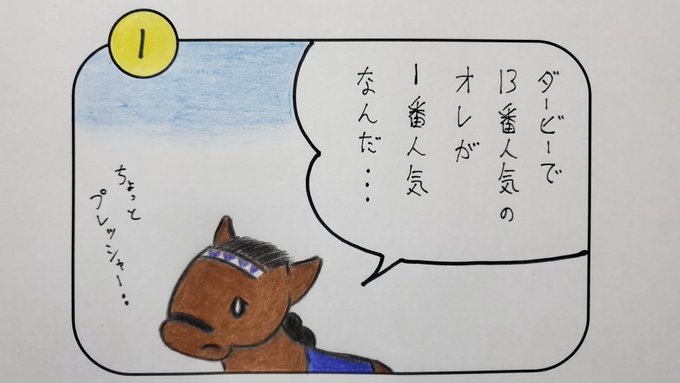 1
ダービーで
13番人気の
オレが
1番人気
なんだ・・・
ちょっと
プレッシャー・・